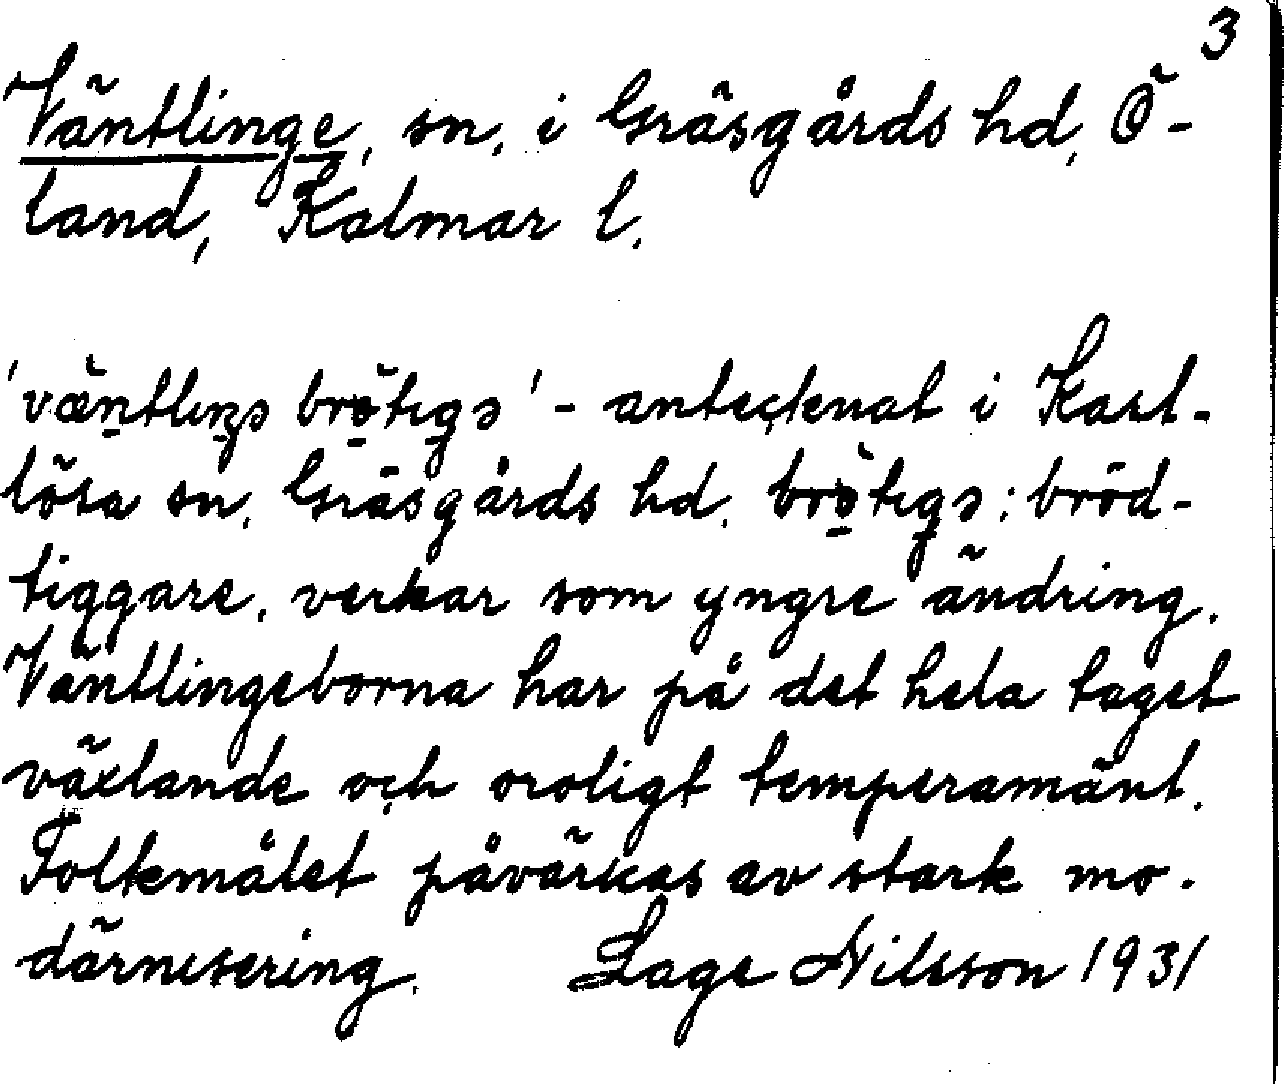 3
Väntlinge, sn. i Gräsgårds hd, Ö-
land, Kalmar l.
'væntlıŋə brötıgə' - antecknat i Kast-
lösa sn. Gräsgårds hd. brötıgə: bröd-
tiggare, verkar som yngre ändring.
Väntlingeborna har på det hela taget
växlande och oroligt temperamänt.
Folkmålet påvärkas av stark mo-
därnisering. Lage Nilsson 1931